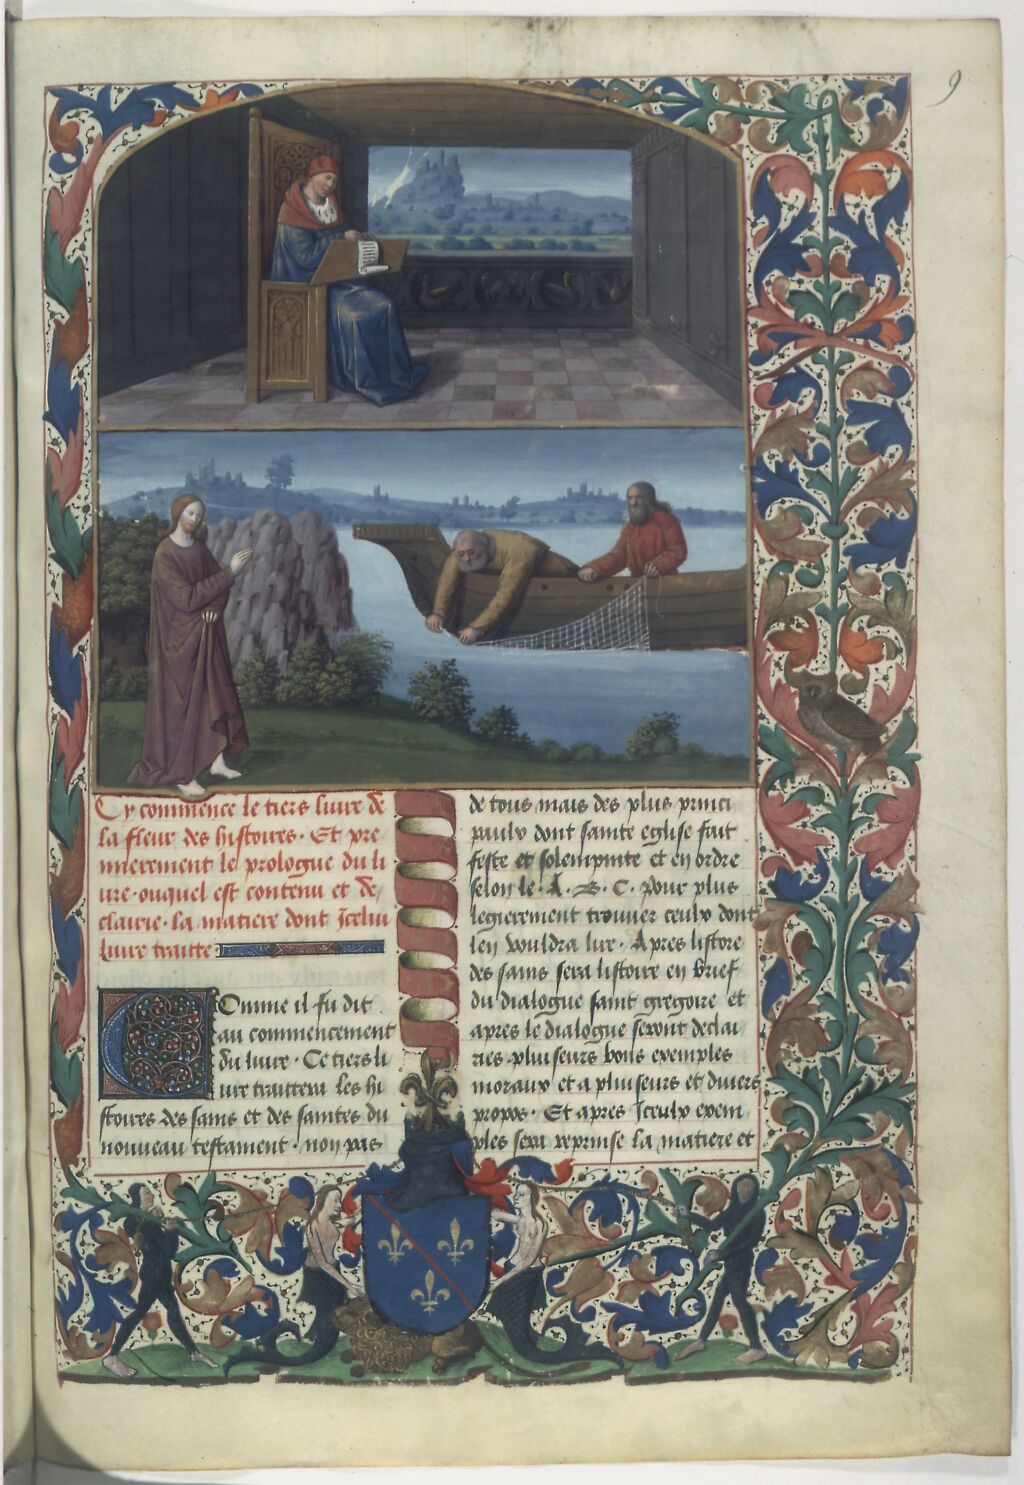 9
Cy commence le tiers livre de
la fleur des histoires. Et pre
mierement le prologue du li
ure. ouquel est contenu et de
clairie. la matiere dont Icelui
liure traitte
Comme il fu dit
au commencement
du liure. Ce tiers li
ure traittera les hi
stoires des sains et des saintes du
nouueau testament. non pas
de tous mais des plus princi
paulx dont sainte eglise fait
feste et solempnite et en ordre
selon le. A. B. C. pour plus
legierement trouuer ceulx dont
len vouldra lire. Apres listore
des sains sera listoire en brief
du dialogue saint gregoire et
apres le dialogue seront declai
ries pluiseurs bons exemples
moraux et a pluiseurs et diuers
propos. Et apres Iceulx exem
ples sera reprinse la matiere et